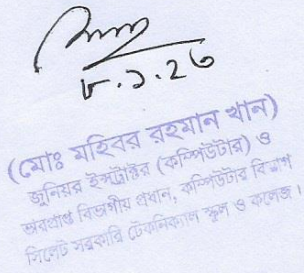 ৮.১.২৩
(মোঃ মহিবর রহমান খান)
জুনিয়র ইন্সট্রাক্টর (কম্পিউটার) ও
ভারপ্রাপ্ত বিভাগীয় প্রধান, কম্পিউটার বিভাগ
সিলেট সরকারি টেকনিক্যাল স্কুল ও কলেজ।